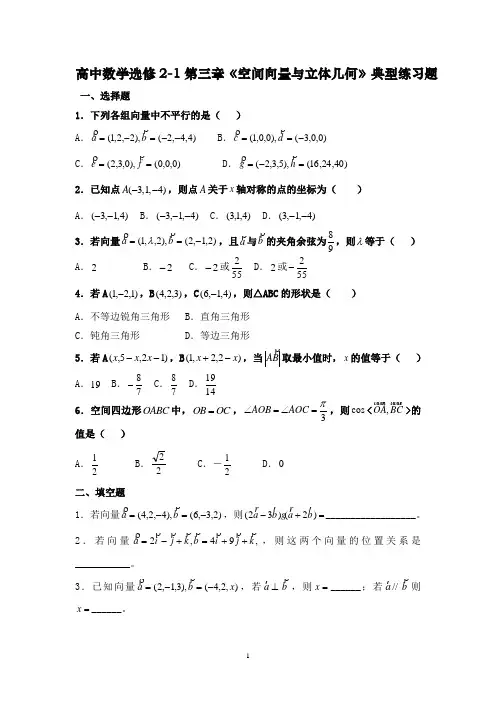 高中数学选修 2-1 第三章《空间向量与立体几何》典型练习题
一、选择题
1．下列各组向量中不平行的是（ ）
A．a=(1,2,−2),b=(−2,−4,4) B．c=(1,0,0),d=(−3,0,0)
C．e=(2,3,0),f=(0,0,0) D．g=(−2,3,5),h=(16,24,40)
2．已知点A(−3,1,−4)，则点A关于x轴对称的点的坐标为（ ）
A．(−3,−1,4) B．(−3,−1,−4) C．(3,1,4) D．(3,−1,−4)
3．若向量a=(1,λ,2),b=(2,−1,2)，且a与b的夹角余弦为8/9，则λ等于（ ）
A．2 B．−2 C．−2或2/55 D．2或−2/55
4．若 A(1,−2,1)，B(4,2,3)，C(6,−1,4)，则△ABC 的形状是（ ）
A．不等边锐角三角形 B．直角三角形
C．钝角三角形 D．等边三角形
5．若 A(x,5−x,2x−1)，B(1,x+2,2−x)，当|AB|取最小值时，x的值等于（ ）
A．19 B．−8/7 C．8/7 D．19/14
6．空间四边形OABC中，OB=OC，∠AOB=∠AOC=π/3，则cos<OA,BC>的
值是（ ）
A．1/2 B．√2/2 C．－1/2 D．0
二、填空题
1．若向量a=(4,2,−4),b=(6,−3,2)，则(2a−3b)g(a+2b)=__________________。
2．若向量a=2i−j+k,b=4i+9j+k,，则这两个向量的位置关系是
___________。
3．已知向量a=(2,−1,3),b=(−4,2,x)，若a⊥b，则x=______；若a//b则
x=______。
1